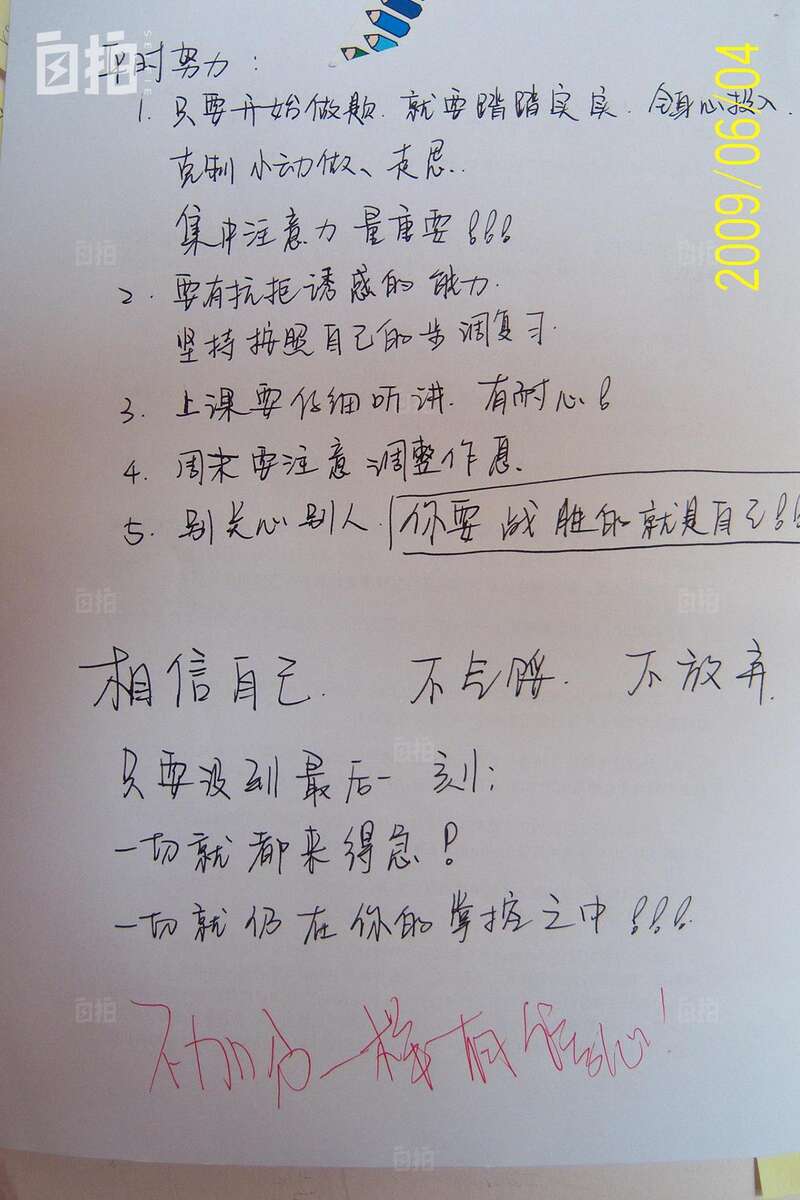 自拍
SELFIE
2009/06/04
平时努力:
1. 只要开始做题. 就要踏踏实实. 全身心投入.
克制小动做、走思..
集中注意力 最重要!!!
2. 要有抗拒诱惑的能力.
坚持按照自己的步调复习.
3. 上课要仔细听讲. 有耐心!
4. 周末要注意调整作息.
5. 别关心别人. 你要战胜的就是自己!!!
相信自己. 不气馁. 不放弃.
只要没到最后一刻;
一切就都来得急!
一切就仍在你的掌控之中!!!
不加分一样有信心!
自拍
自拍
自拍
自拍
自拍
自拍
自拍
自拍